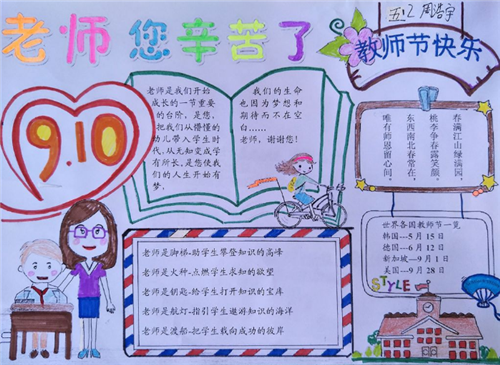 五.2 周浩宇
老师您辛苦了
教师节快乐
9.10
老师是我们开始
成长的一节重要
的台阶，是您，
把我们从懵懂的
幼儿带入学生时
代，从无知变成学
有所长，是您使我
们的人生开始有
梦，
我们的生命
也因为梦想和
期待而不在空
白……
老师，谢谢您！
春满江山绿满园，
桃李争春露笑颜。
东西南北春常在，
唯有师恩留心间。
世界各国教师节一览
韩国---5月15日
德国---6月12日
新加坡---9月1日
美国---9月28日
STYLE
老师是脚梯-助学生攀登知识的高峰
老师是火种-点燃学生求知的欲望
老师是钥匙-给学生打开知识的宝库
老师是航灯-指引学生遨游知识的海洋
老师是渡船-把学生载向成功的彼岸